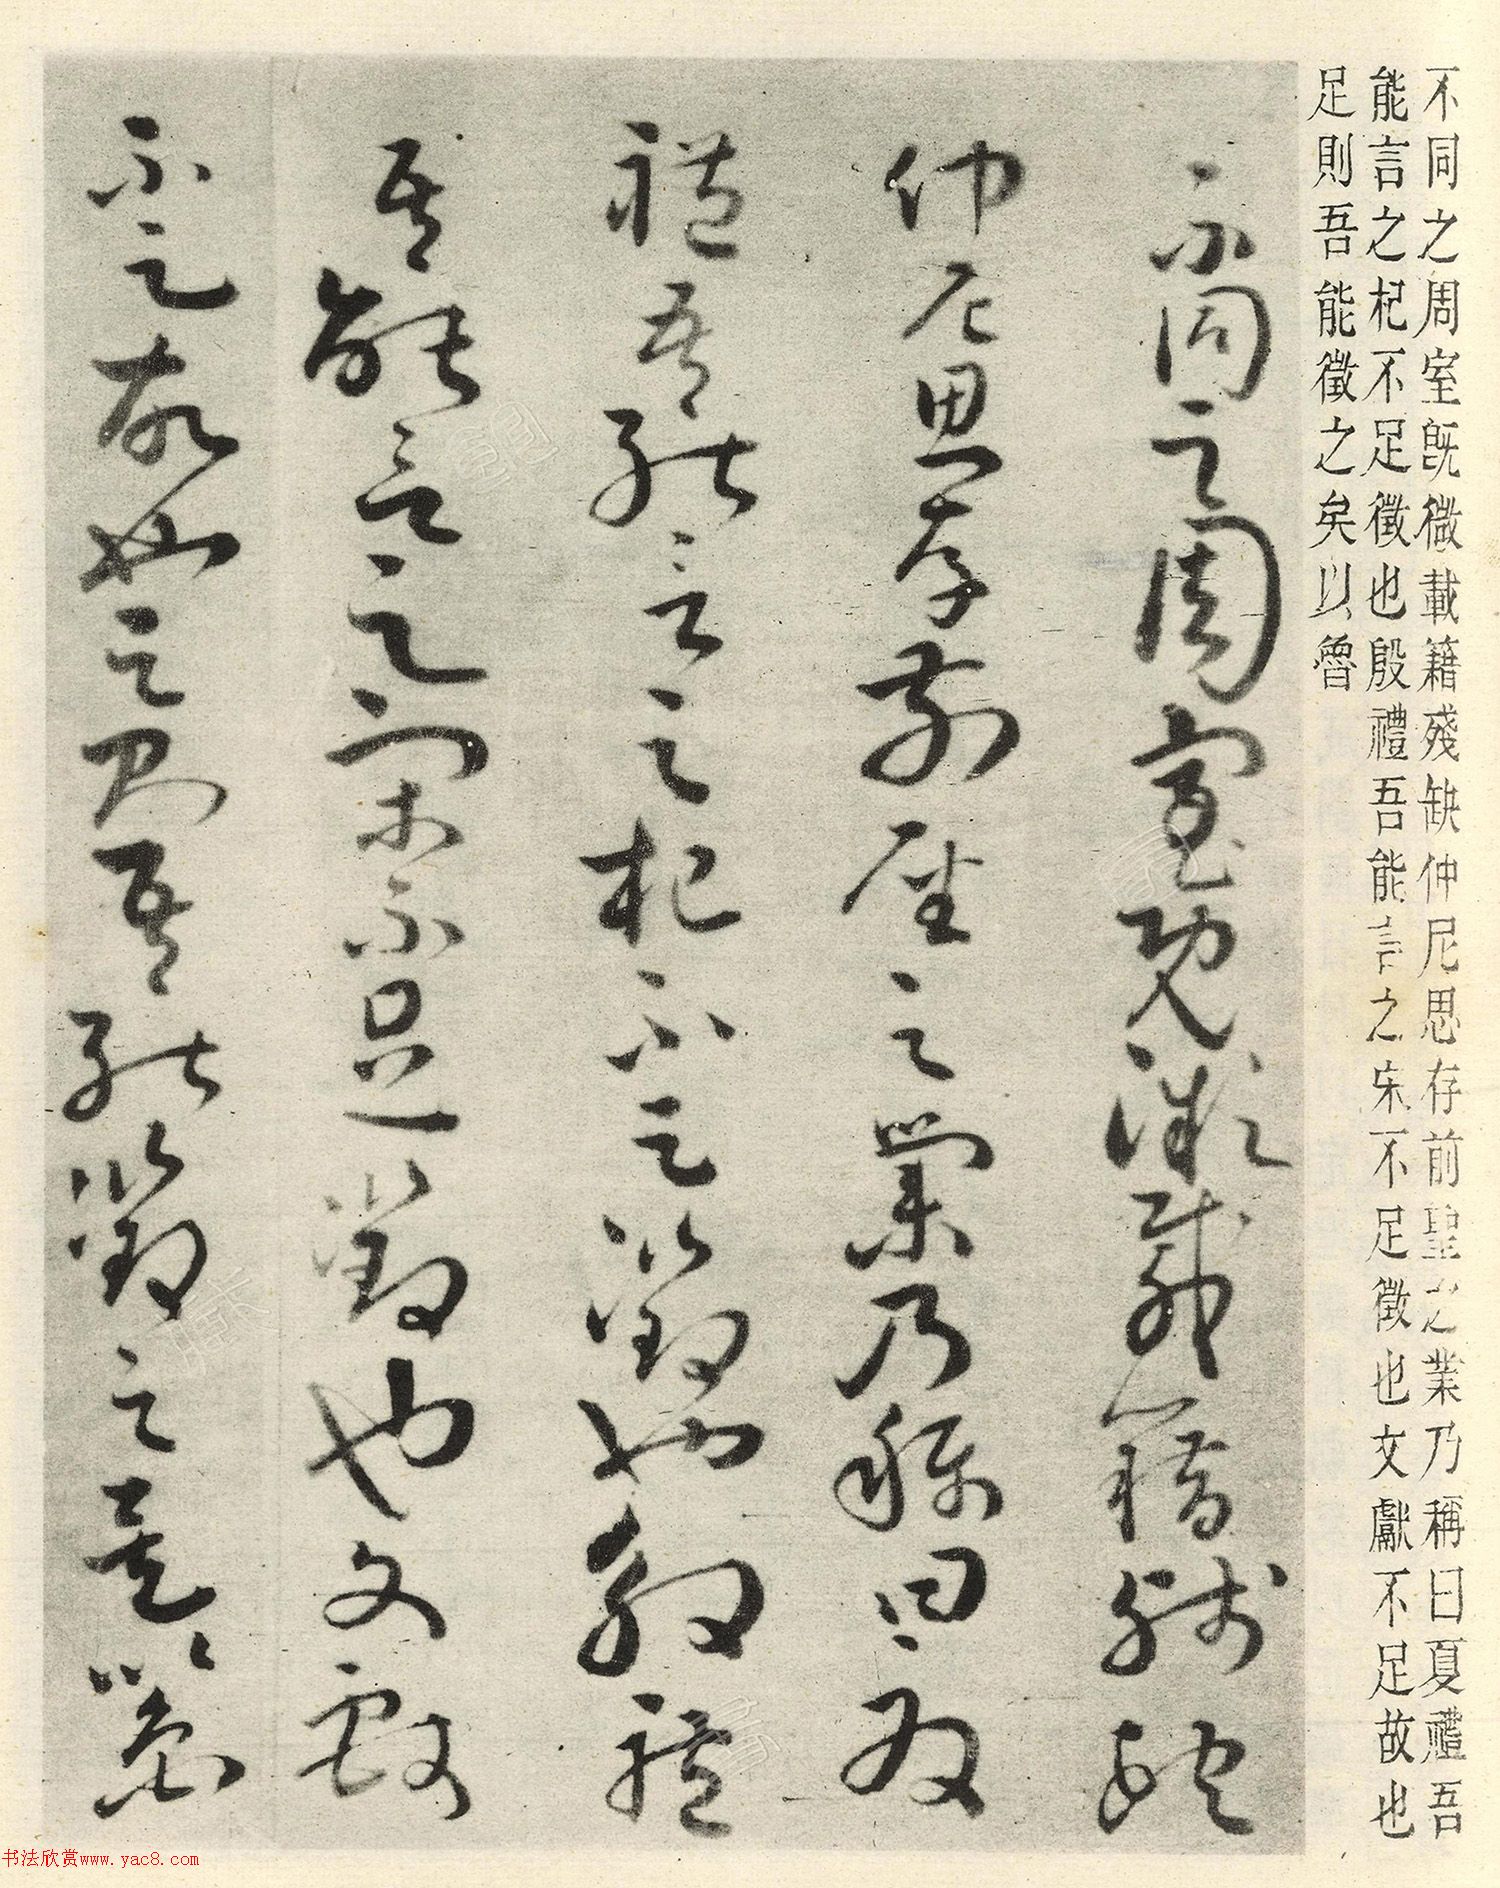 不同之周室既微載籍殘缺仲尼思存前聖之業乃稱曰夏禮吾
能言之杞不足徵也殷禮吾能言之宋不足徵也文獻不足故也
足則吾能徵之矣以魯
不同之周室既微載籍殘缺
仲尼思存前聖之業乃稱曰夏
禮吾能言之杞不足徵也殷禮
吾能言之宋不足徵也文獻
不足故也足則吾能徵之矣以魯
书法欣赏www.yac8.com